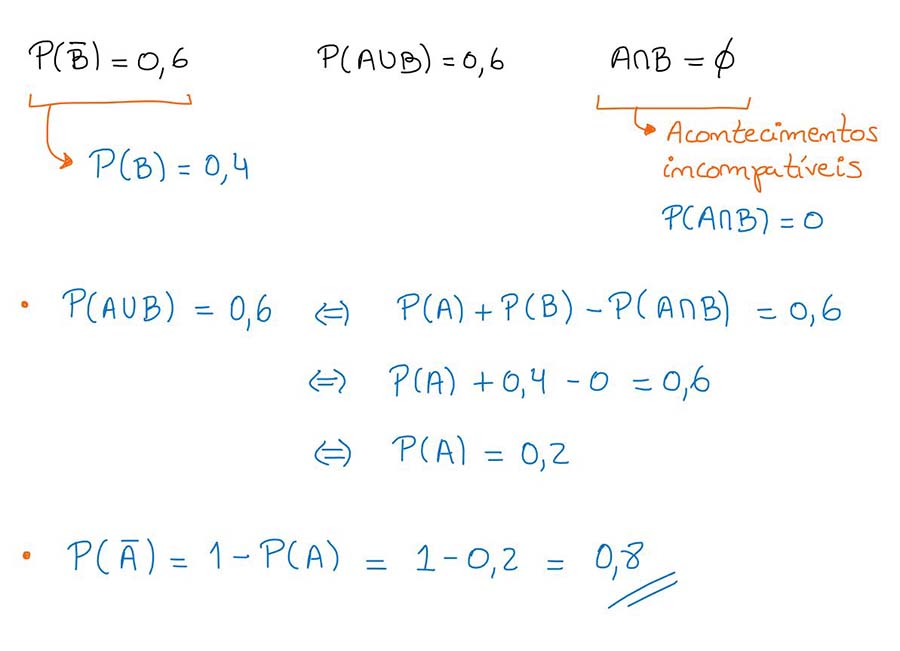 P(B̄) = 0,6 P(A∪B) = 0,6 A∩B = ∅
P(B) = 0,4
Acontecimentos
incompatíveis
P(A∩B) = 0
• P(A∪B) = 0,6 ⇔ P(A) + P(B) - P(A∩B) = 0,6
⇔ P(A) + 0,4 - 0 = 0,6
⇔ P(A) = 0,2
• P(Ā) = 1 - P(A) = 1 - 0,2 = 0,8